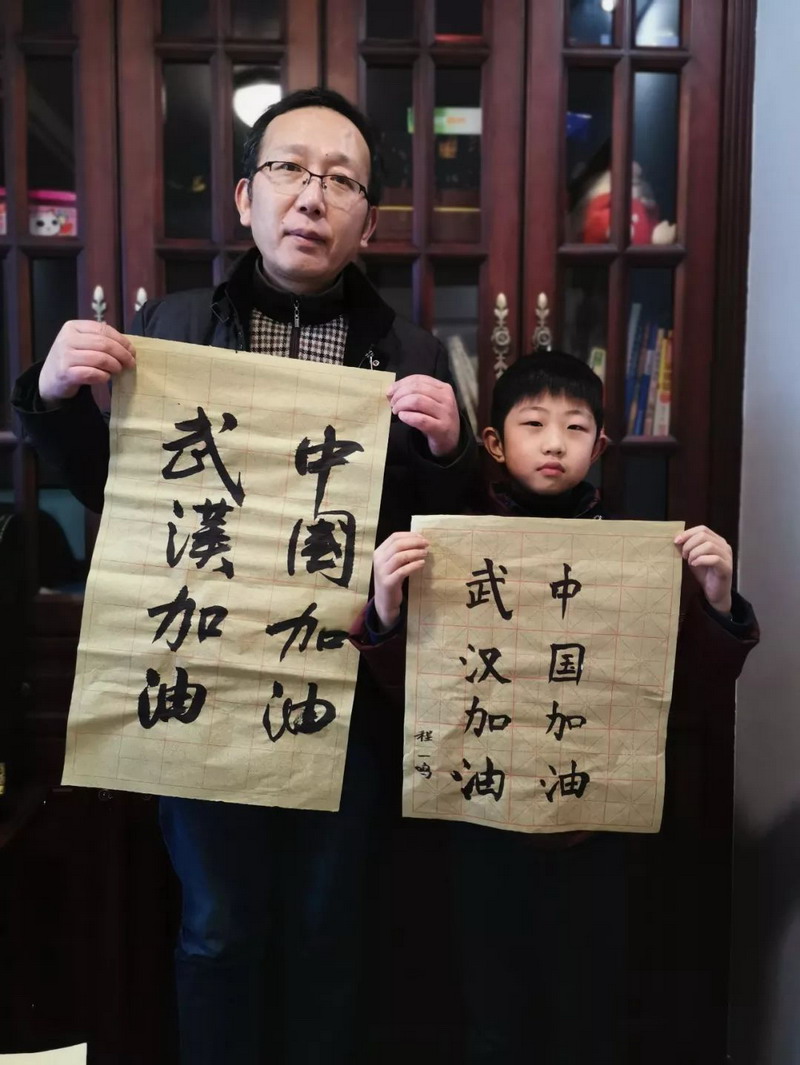 中國加油
武漢加油
中国加油
武汉加油
程一鸣